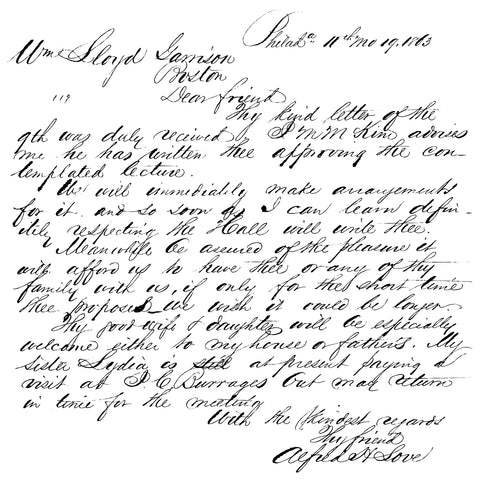 Philada. 11th mo 19, 1863
Wm Lloyd Garrison
Boston
Dear friend
Thy kind letter of the
9th was duly received, J M M Kim advises
me he has written thee approving the con-
templated lecture.
We will immediately make arrangements
for it and so soon as I can learn defin-
itely respecting the Hall will write thee.
Meanwhile be assured of the pleasure it
will afford us to have thee or any of thy
family with us, if only for the short time
thee proposes we wish it could be longer.
Thy good wife & daughter will be especially
welcome either to my house or fathers. My
Sister Lydia is still at present paying a
visit at J. C. Burrages but may return
in time for the meeting
With the kindest regards
Thy friend
Alfred H Love